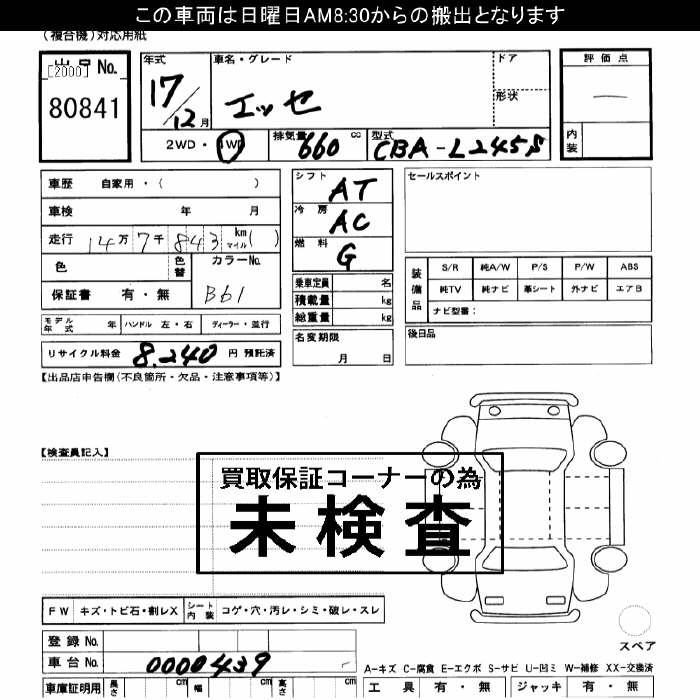 この車両は日曜日AM8:30からの搬出となります
(複合機)対応用紙
出品No.
[2000]
80841
年式
17/12月
車名・グレード
エッセ
ドア
形状
評価点
内装
2WD・4WD
排気量 660 cc
型式 CBA-L245S
車歴 自家用・( )
車検 年 月
走行 14万7千843 km マイル( )
色 色替
カラーNo.
B61
保証書 有・無
シフト AT
冷房 AC
燃料 G
乗車定員 名
積載量 kg
総重量 kg
セールスポイント
装備品
S/R 純A/W P/S P/W ABS
純TV 純ナビ 革シート 外ナビ エアB
ナビ型番:
モデル年式 年 ハンドル 左・右 ディーラー・並行
名変期限
月 日
後日品
リサイクル料金 8,240 円 預託済
【出品店申告欄(不良箇所・欠品・注意事項等)】
【検査員記入】
買取保証コーナーの為
未検査
FW キズ・トビ石・割レX シート内装 コゲ・穴・汚レ・シミ・破レ・スレ
スペア
登録No.
車台No. 0000439
A-キズ C-腐食 E-エクボ S-サビ U-凹ミ W-補修 XX-交換済
車庫証明用 長さ cm 幅 cm 高さ cm
工具 有・無 ジャッキ 有・無